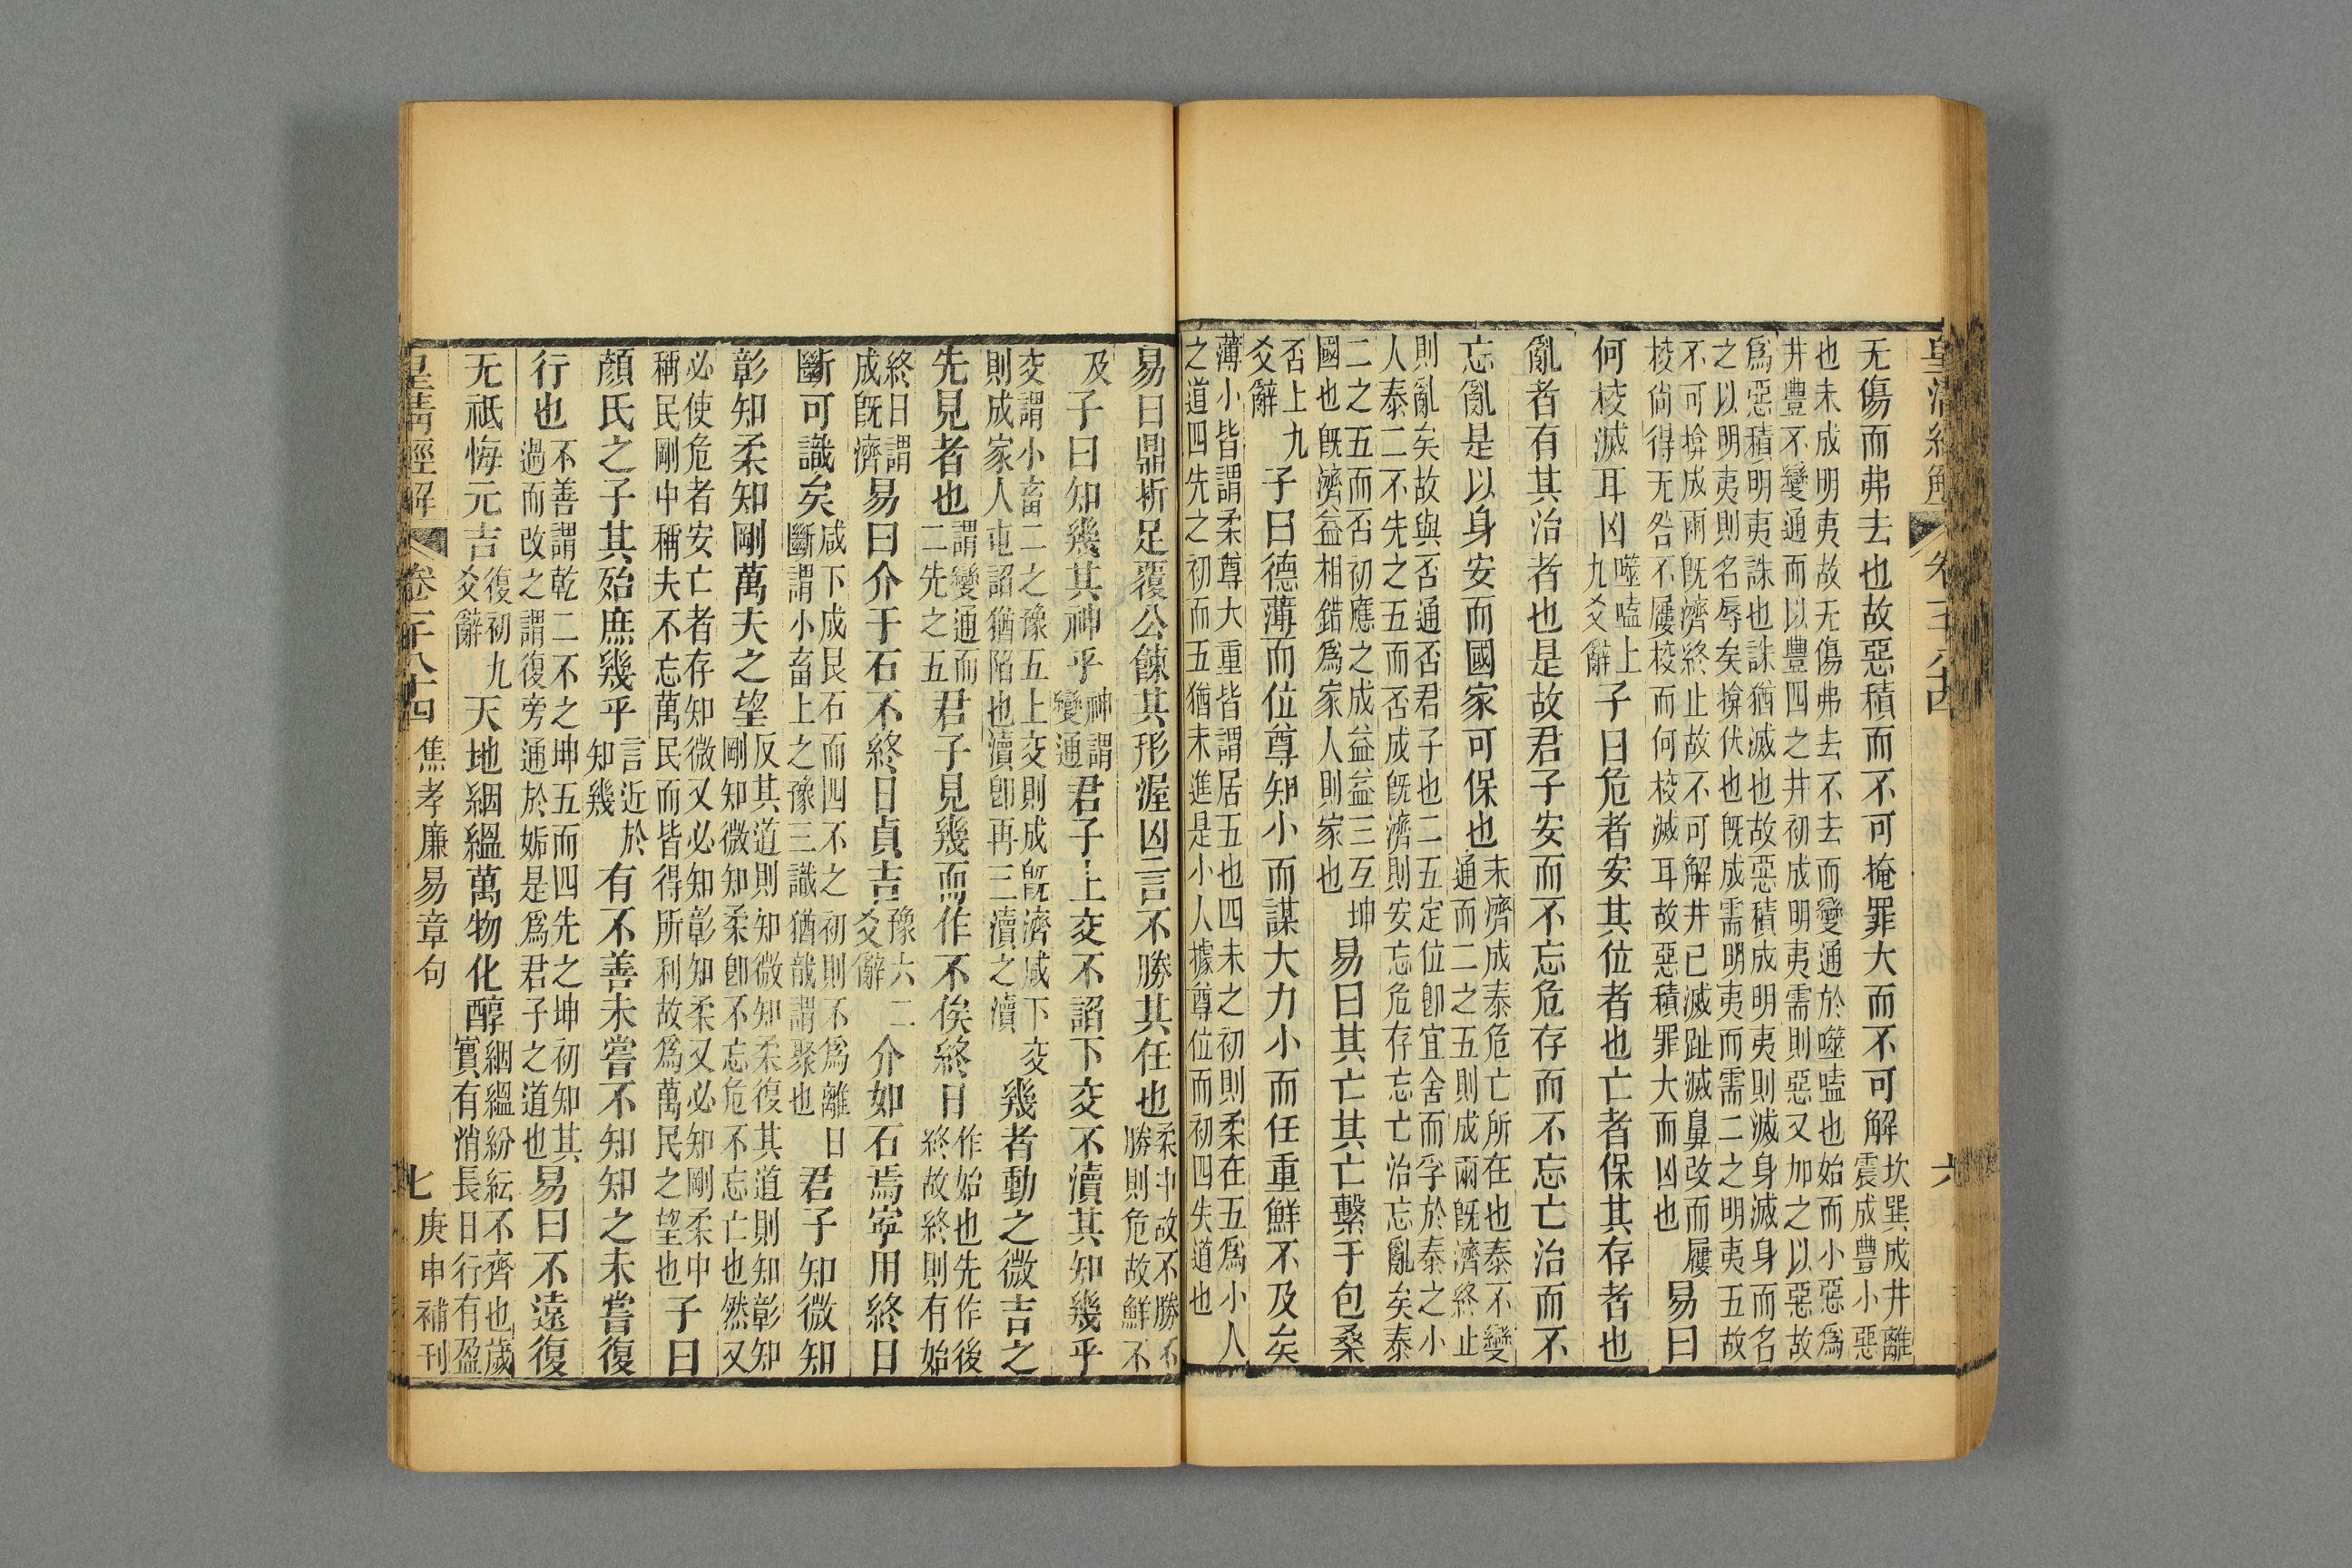 皇清經解 卷千八十四 六
无傷而弗去也故惡積而不可掩罪大而不可解
坎巽成井離
震成豐小惡
也未成明夷故无傷弗去不去而變通於噬嗑也始而小惡爲
井豐不變通而以豐四之井初成明夷需則惡又加之以惡故
爲惡積明夷誅也誅猶滅也故惡積成明夷則滅身滅身而名
之以明夷則名辱矣揜伏也旣成需明夷而需二之明夷五故
不可揜成兩旣濟終止故不可解井已滅趾滅鼻改而屨
校尙得无咎不屨校而何校滅耳故惡積罪大而凶也
易曰
何校滅耳凶
噬嗑上
九爻辭
子曰危者安其位者也亡者保其存者也
亂者有其治者也是故君子安而不忘危存而不忘亡治而不
忘亂是以身安而國家可保也
未濟成泰危亡所在也泰不變
通而二之五則成兩旣濟終止
則亂矣故與否通否君子也二五定位卽宜舍而孚於泰之小
人泰二不先之五而否成旣濟則安忘危存忘亡治忘亂矣泰
二之五而否初應之成益益三互坤
國也旣濟益相錯爲家人則家也
易曰其亡其亡繫于包桑
否上九
爻辭
子曰德薄而位尊知小而謀大力小而任重鮮不及矣
薄小皆謂柔尊大重皆謂居五也四未之初則柔在五爲小人
之道四先之初而五猶未進是小人據尊位而初四失道也
易曰鼎折足覆公餗其形渥凶言不勝其任也
柔中故不勝不
勝則危故鮮不
及
子曰知幾其神乎
神謂
變通
君子上交不諂下交不瀆其知幾乎
交謂小畜二之豫五上交則成旣濟咸下交
則成家人屯諂猶陷也瀆卽再三瀆之瀆
幾者動之微吉之
先見者也
謂變通而
二先之五
君子見幾而作不俟終日
作始也先作後
終故終則有始
終日謂
成旣濟
易曰介于石不終日貞吉
豫六二
爻辭
介如石焉寧用終日
斷可識矣
咸下成艮石而四不之初則不爲離日
斷謂小畜上之豫三識猶哉謂聚也
君子知微知
彰知柔知剛萬夫之望
反其道則知微知柔復其道則知彰知
剛知微知柔卽不忘危不忘亡也然又
必使危者安亡者存知微又必知彰知柔又必知剛柔中
稱民剛中稱夫不忘萬民而皆得所利故爲萬民之望也
子曰
顏氏之子其殆庶幾乎
言近於
知幾
有不善未嘗不知知之未嘗復
行也
不善謂乾二不之坤五而四先之坤初知其
過而改之謂復旁通於姤是爲君子之道也
易曰不遠復
无祗悔元吉
復初九
爻辭
天地絪縕萬物化醇
絪縕紛紜不齊也歲
實有消長日行有盈
皇清經解 卷千八十四 焦孝廉易章句 七 庚申補刊